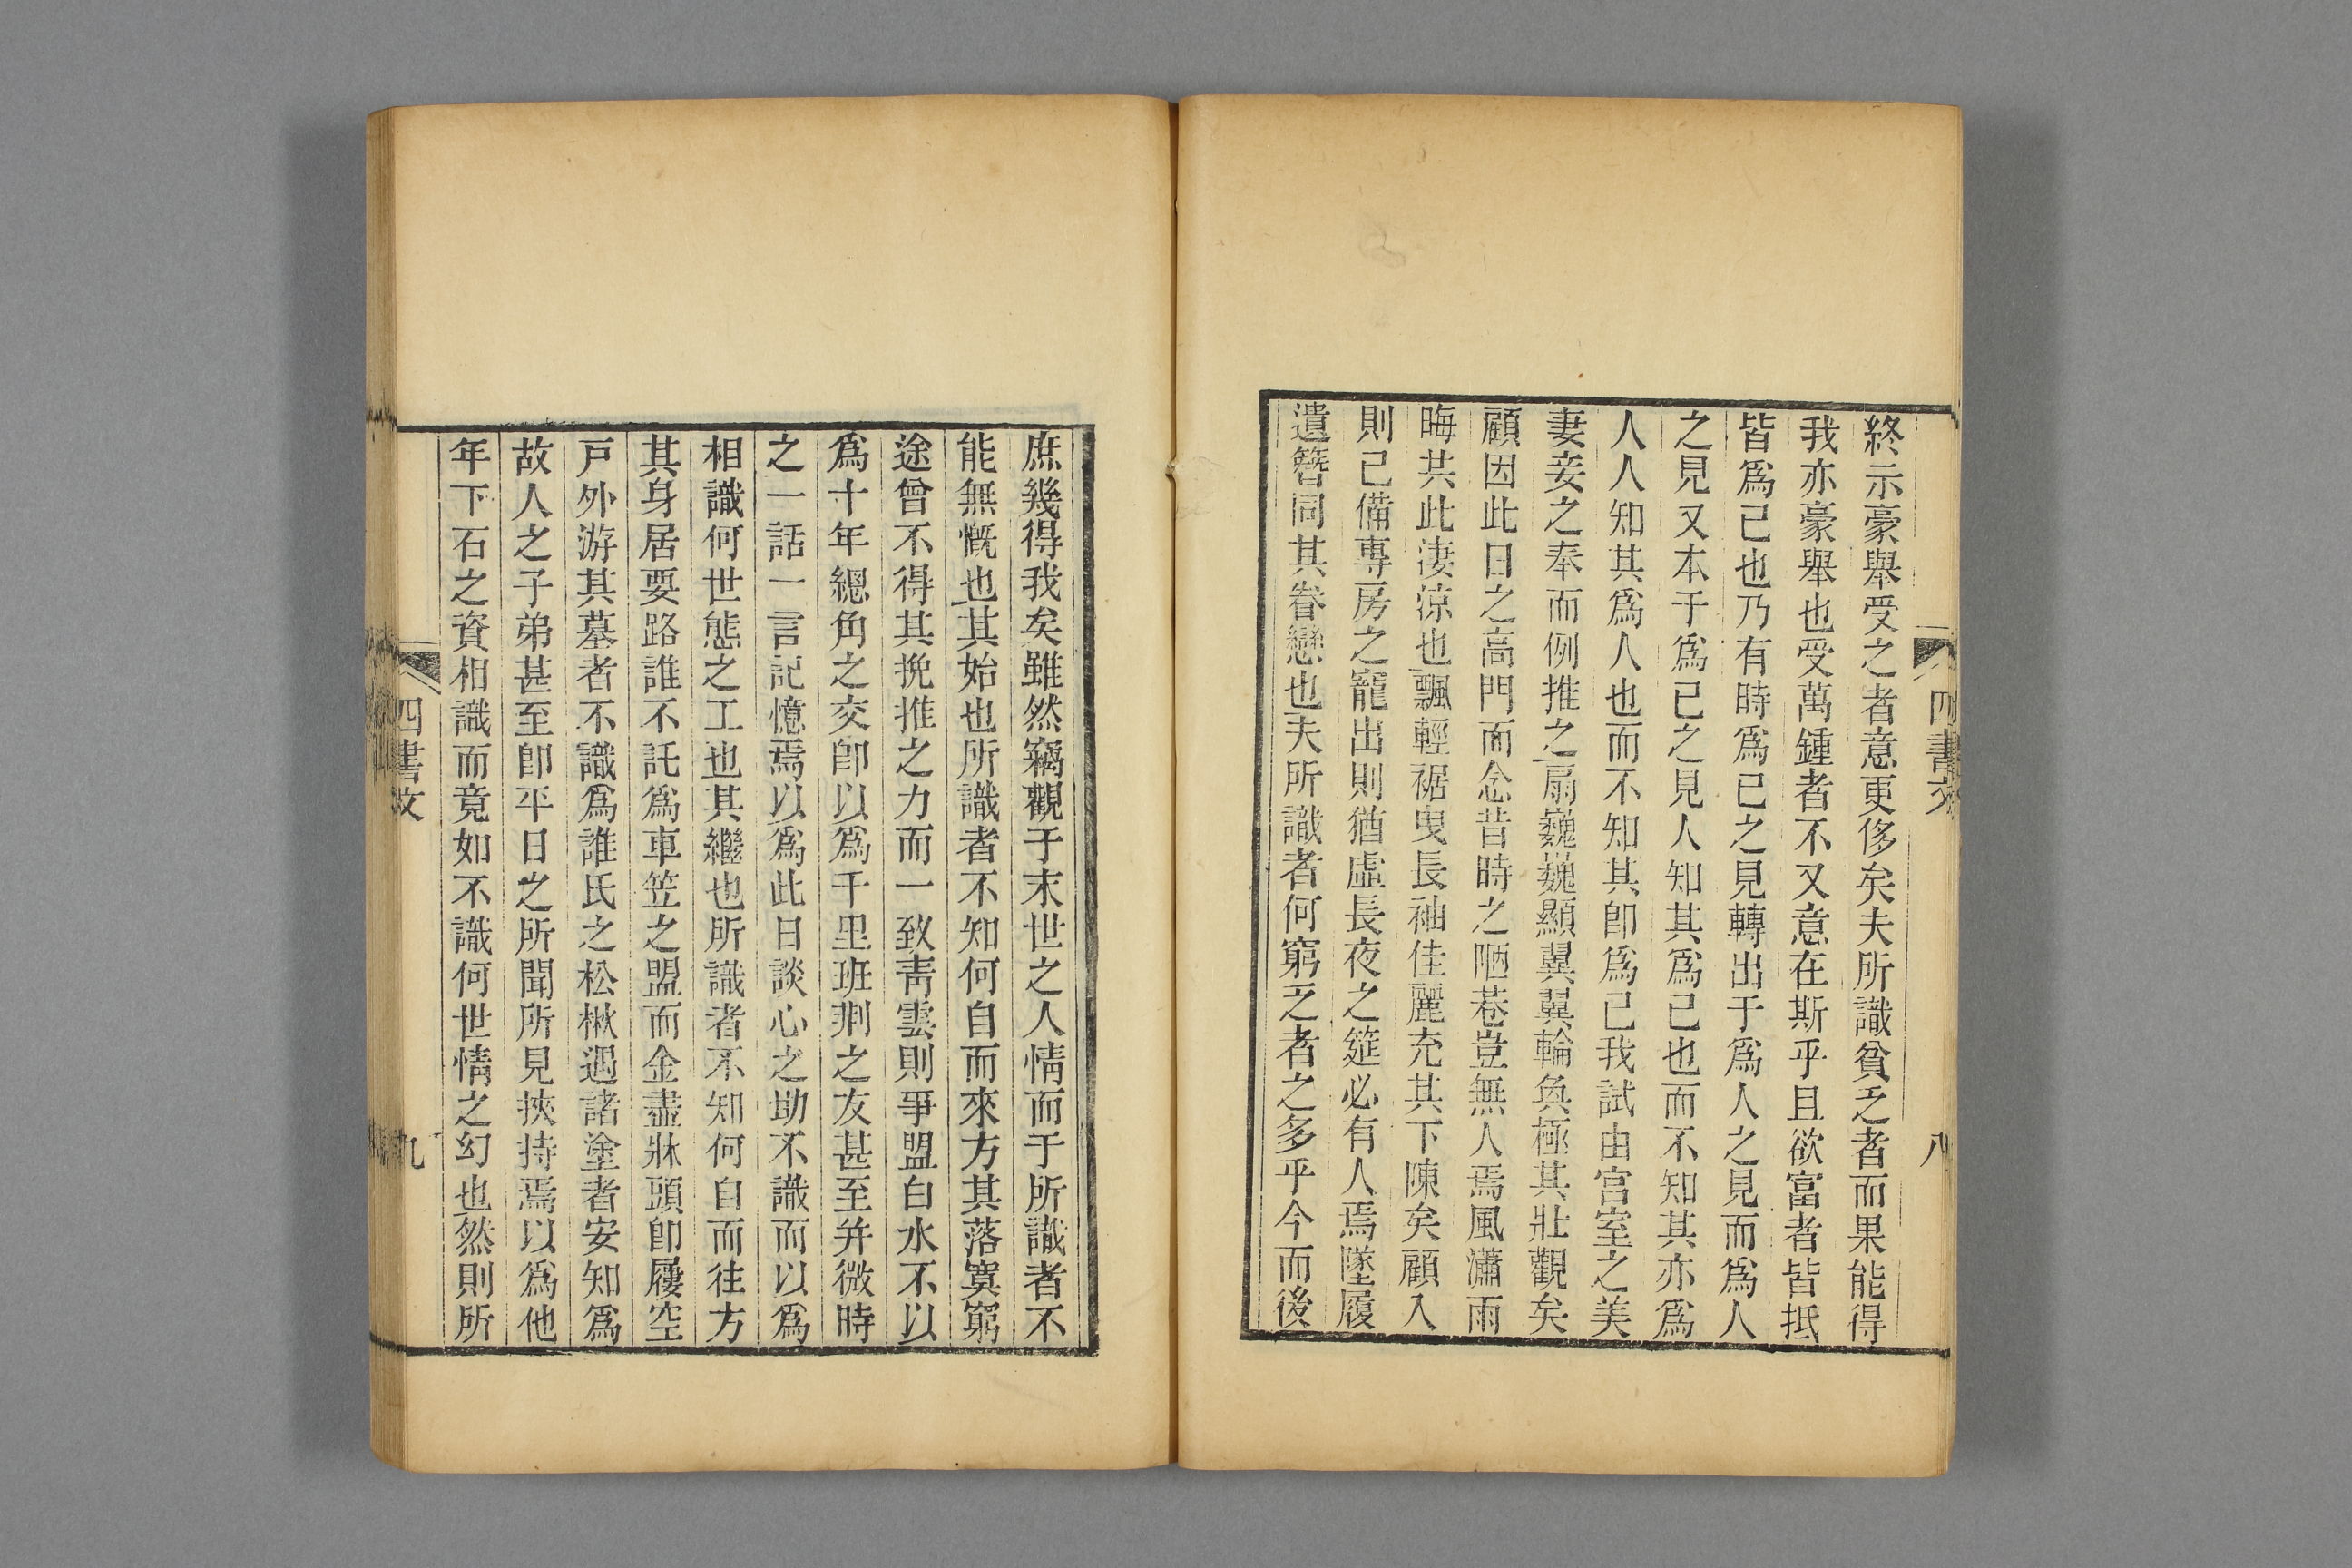 四書文
八
終示豪舉受之者意更侈矣夫所識貧乏者而果能得
我亦豪舉也受萬鍾者不又意在斯乎且欲富者皆抵
皆爲已也乃有時爲已之見轉出于爲人之見而爲人
之見又本于爲已之見人知其爲已也而不知其亦爲
人人知其爲人也而不知其卽爲已我試由宮室之美
妻妾之奉而例推之一扇巍巍顯翼翼輪奐極其壯觀矣
顧因此日之高門而念昔時之陋巷豈無人焉風瀟雨
晦共此淒涼也飄輕裾曳長袖佳麗充其下陳矣顧入
則已備專房之寵出則猶虛長夜之筵必有人焉墜履
遺簪同其眷戀也夫所識者何窮乏者之多乎今而後
庶幾得我矣雖然竊觀于末世之人情而于所識者不
能無慨也其始也所識者不知何自而來方其落寞窮
途曾不得其挽推之力而一致靑雲則爭盟白水不以
爲十年總角之交卽以爲千里班荆之友甚至幷微時
之一話一言記憶焉以爲此日談心之助不識而以爲
相識何世態之工也其繼也所識者不知何自而往方
其身居要路誰不託爲車笠之盟而金盡牀頭卽屨空
戶外游其墓者不識爲誰氏之松楸遇諸塗者安知爲
故人之子弟甚至卽平日之所聞所見挾持焉以爲他
年下石之資相識而竟如不識何世情之幻也然則所
四書文
九